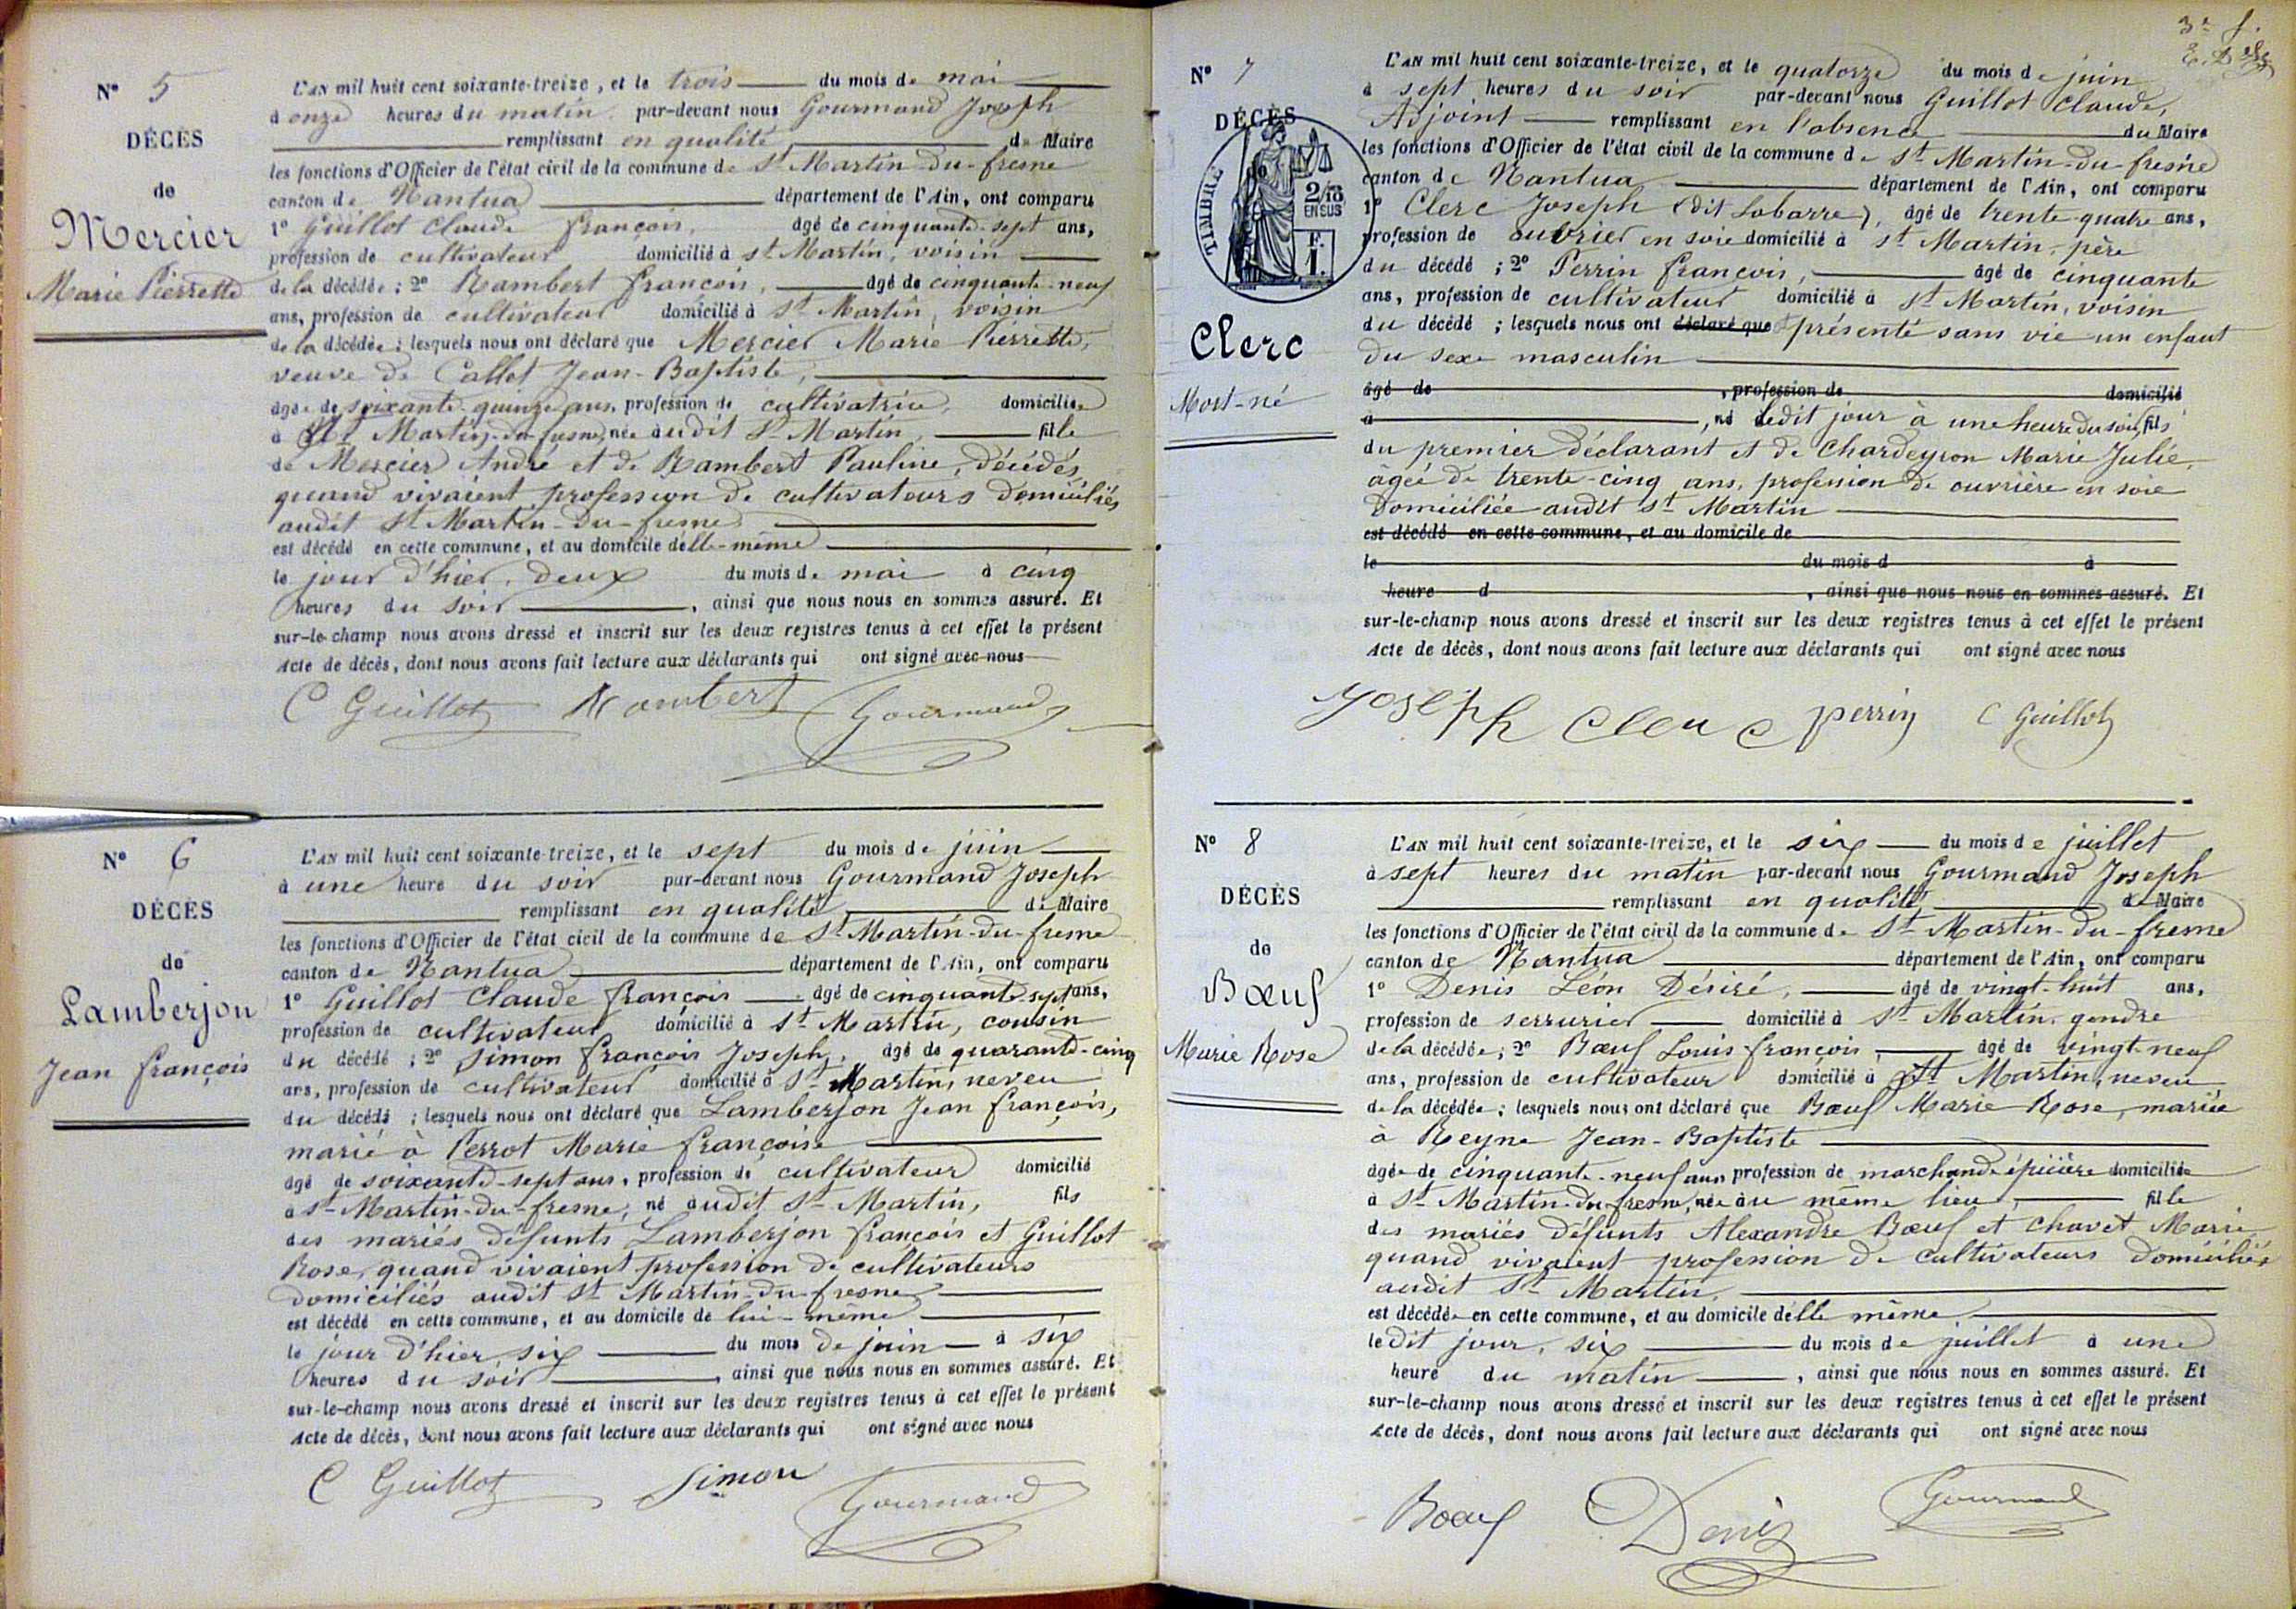 N° 5
DÉCÈS
de
Mercier
Marie Pierrette
L'AN mil huit cent soixante-treize, et le trois du mois de mai
à onze heures du matin par-devant nous Gourmand Joseph
remplissant en qualité de Maire
les fonctions d'Officier de l'état civil de la commune de St Martin-du-fresne
canton de Nantua département de l'Ain, ont comparu
1° Guillot Claude françois, âgé de cinquante-sept ans,
profession de cultivateur domicilié à St Martin, voisin
de la décédée; 2° Rambert françois, âgé de cinquante-neuf
ans, profession de cultivateur domicilié à St Martin, voisin
de la décédée; lesquels nous ont déclaré que Mercier Marie Pierrette,
veuve de Callet Jean-Baptiste,
âgée de soixante-quinze ans, profession de cultivatrice, domiciliée
à St Martin-du-fresne, née audit St Martin, fille
de Mercier André et de Rambert Pauline, décédés
quand vivaient profession de cultivateurs domiciliés
audit St Martin-du-fresne
est décédé en cette commune, et au domicile d'elle-même
le jour d'hier, deux du mois de mai à cinq
heures du soir, ainsi que nous nous en sommes assuré. Et
sur-le-champ nous avons dressé et inscrit sur les deux registres tenus à cet effet le présent
Acte de décès, dont nous avons fait lecture aux déclarants qui ont signé avec nous
C Guillot Rambert Gourmand
N° 6
DÉCÈS
de
Lamberjon
Jean françois
L'AN mil huit cent soixante-treize, et le sept du mois de juin
à une heure du soir par-devant nous Gourmand Joseph
remplissant en qualité de Maire
les fonctions d'Officier de l'état civil de la commune de St Martin-du-fresne
canton de Nantua département de l'Ain, ont comparu
1° Guillot Claude françois âgé de cinquante sept ans,
profession de cultivateur domicilié à St Martin, cousin
du décédé; 2° Simon françois Joseph, âgé de quarante-cinq
ans, profession de cultivateur domicilié à St Martin, neveu
du décédé; lesquels nous ont déclaré que Lamberjon Jean françois,
marié à Perrot Marie françoise
âgé de soixante-sept ans, profession de cultivateur domicilié
à St Martin-du-fresne, né audit St Martin, fils
des mariés défunts Lamberjon françois et Guillot
Rose, quand vivaient profession de cultivateurs
domiciliés audit St Martin-du-fresne
est décédé en cette commune, et au domicile de lui-même
le jour d'hier, six du mois de juin à six
heures du soir, ainsi que nous nous en sommes assuré. Et
sur-le-champ nous avons dressé et inscrit sur les deux registres tenus à cet effet le présent
Acte de décès, dont nous avons fait lecture aux déclarants qui ont signé avec nous
C Guillot Simon Gourmand
3e f.
N° 7
DÉCÈS
TIMBRE
2/10
EN SUS
F.
1.
Clerc
Mort-né
L'AN mil huit cent soixante-treize, et le quatorze du mois de juin
à sept heures du soir par-devant nous Guillot Claude,
Adjoint remplissant en l'absence du Maire
les fonctions d'Officier de l'état civil de la commune de St Martin-du-fresne
canton de Nantua département de l'Ain, ont comparu
1° Clerc Joseph (dit Labarre), âgé de trente-quatre ans,
profession de ouvrier en soie domicilié à St Martin, père
du décédé; 2° Perrin françois, âgé de cinquante
ans, profession de cultivateur domicilié à St Martin, voisin
du décédé; lesquels nous ont déclaré que présenté sans vie un enfant
du sexe masculin
âgé de, profession de domicilié
à, né ledit jour à une heure du soir, fils
du premier déclarant et de Chardeyron Marie Julie,
âgée de trente-cinq ans, profession de ouvrière en soie
domiciliée audit St Martin
est décédé en cette commune, et au domicile de
le du mois d à
heure d, ainsi que nous nous en sommes assuré. Et
sur-le-champ nous avons dressé et inscrit sur les deux registres tenus à cet effet le présent
Acte de décès, dont nous avons fait lecture aux déclarants qui ont signé avec nous
Joseph Clerc perrin C Guillot
N° 8
DÉCÈS
de
Bœuf
Marie Rose
L'AN mil huit cent soixante-treize, et le six du mois de juillet
à sept heures du matin par-devant nous Gourmand Joseph
remplissant en qualité de Maire
les fonctions d'Officier de l'état civil de la commune de St Martin-du-fresne
canton de Nantua département de l'Ain, ont comparu
1° Denis Léon Désiré, âgé de vingt-huit ans,
profession de serrurier domicilié à St Martin, gendre
de la décédée; 2° Bœuf Louis françois, âgé de vingt-neuf
ans, profession de cultivateur domicilié à St Martin, neveu
de la décédée; lesquels nous ont déclaré que Bœuf Marie Rose, mariée
à Reyne Jean-Baptiste
âgée de cinquante-neuf ans, profession de marchande épicière domiciliée
à St Martin-du-fresne, née au même lieu, fille
des mariés défunts Alexandre Bœuf et Chavet Marie
quand vivaient profession de cultivateurs domiciliés
audit St Martin,
est décédée en cette commune, et au domicile d'elle même
le dit jour, six du mois de juillet à une
heure du matin, ainsi que nous nous en sommes assuré. Et
sur-le-champ nous avons dressé et inscrit sur les deux registres tenus à cet effet le présent
Acte de décès, dont nous avons fait lecture aux déclarants qui ont signé avec nous
Boeuf Denis Gourmand